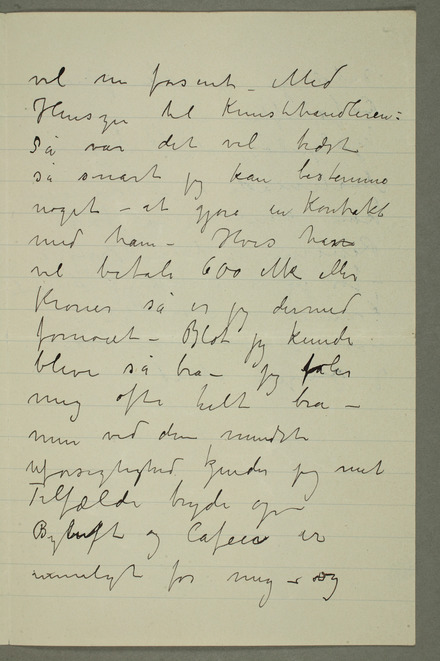 vel nu for sent – Med
Hensyn til Kunsthandleren:
Så var det vel bedst
så snart jeg kan bestemme
noget – at gjøre en Kontrakt
med ham – Hvis han
vil betale 600 Mk eller
Kroner så er jeg dermed
fornøiet – Blot jeg kunde
blive så bra – jeg føler
mig ofte helt bra –
men ved den mindste
uforsigtighed kjender jeg mit
Tilfælde bryde op
Byluft og Cafeer er
umuligt for mig – og